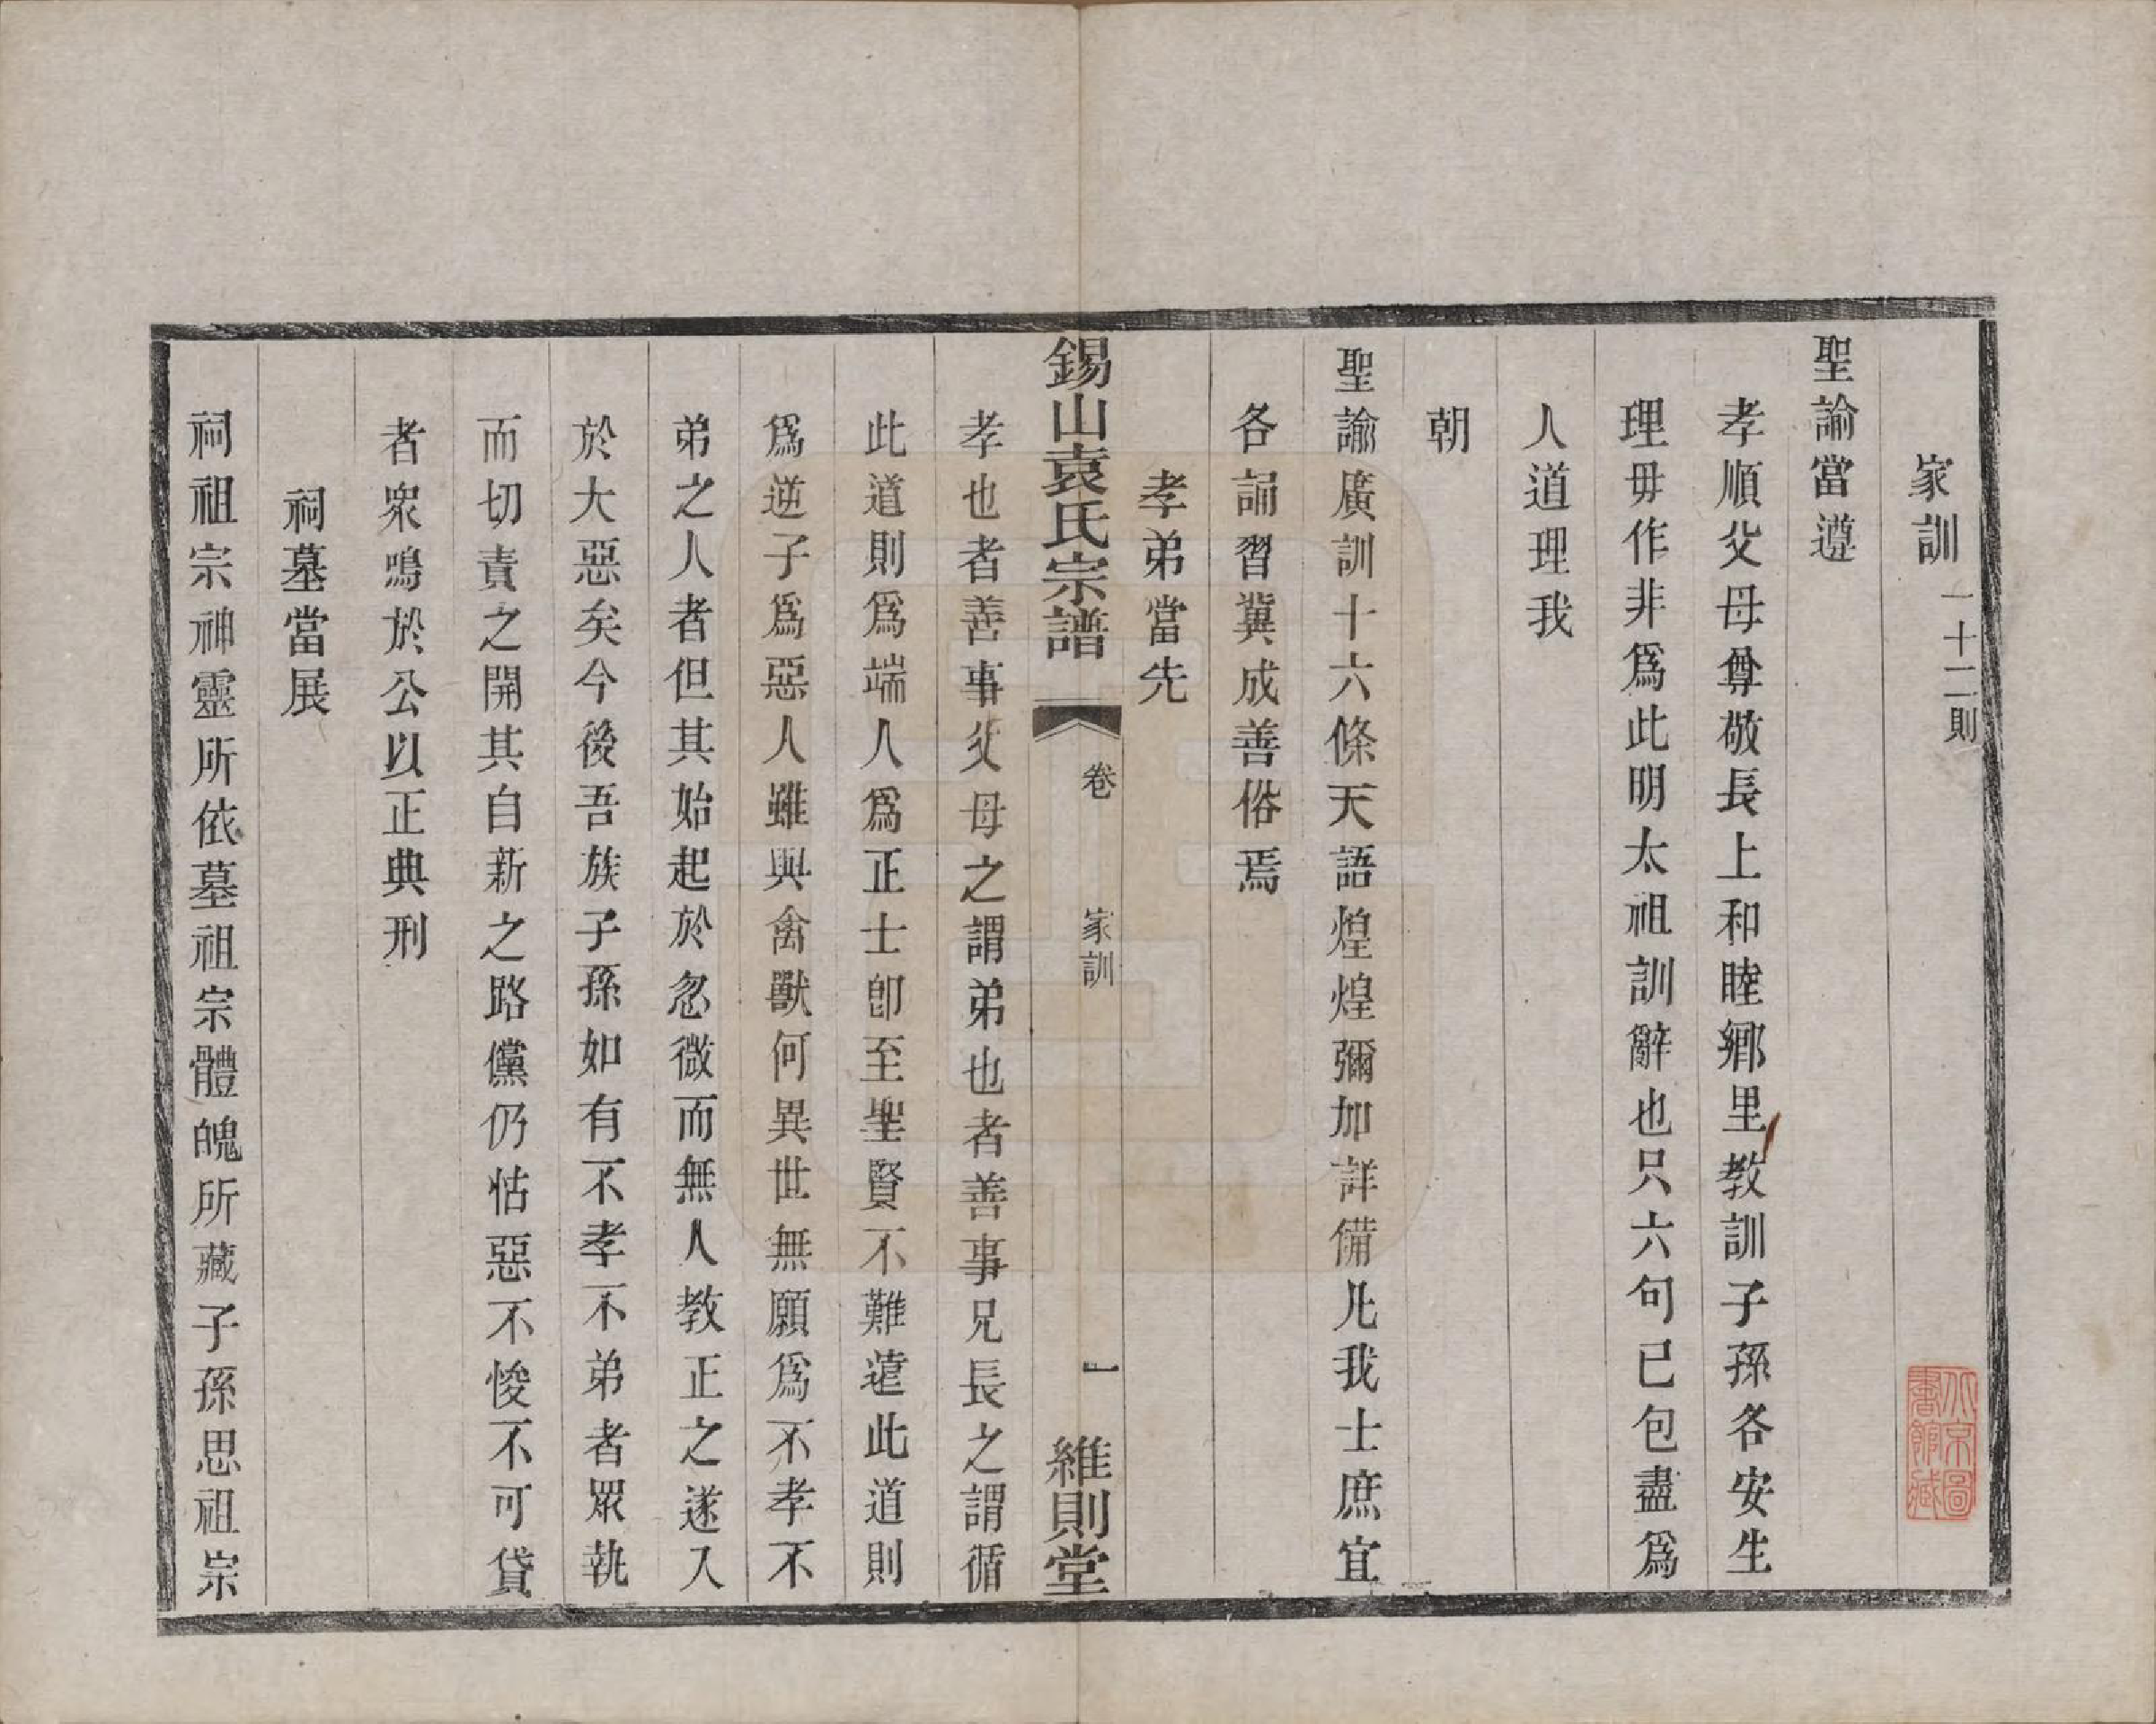 家訓 一十二則
聖諭當遵
孝順父母尊敬長上和睦鄉里教訓子孫各安生
理毋作非爲此明太祖訓辭也只六句已包盡爲
人道理我
朝
聖諭廣訓十六條天語煌煌彌加詳備凡我士庶宜
各誦習冀成善俗焉
孝弟當先
錫山袁氏宗譜 卷 家訓 一 維則堂
孝也者善事父母之謂弟也者善事兄長之謂循
此道則爲端人爲正士卽至聖賢不難違此道則
爲逆子爲惡人雖與禽獸何異世無願爲不孝不
弟之人者但其始起於忽微而無人教正之遂入
於大惡矣今後吾族子孫如有不孝不弟者眾執
而切責之開其自新之路儻仍怙惡不悛不可貸
者衆鳴於公以正典刑
祠墓當展
祠祖宗神靈所依墓祖宗體魄所藏子孫思祖宗
北京圖
書館藏